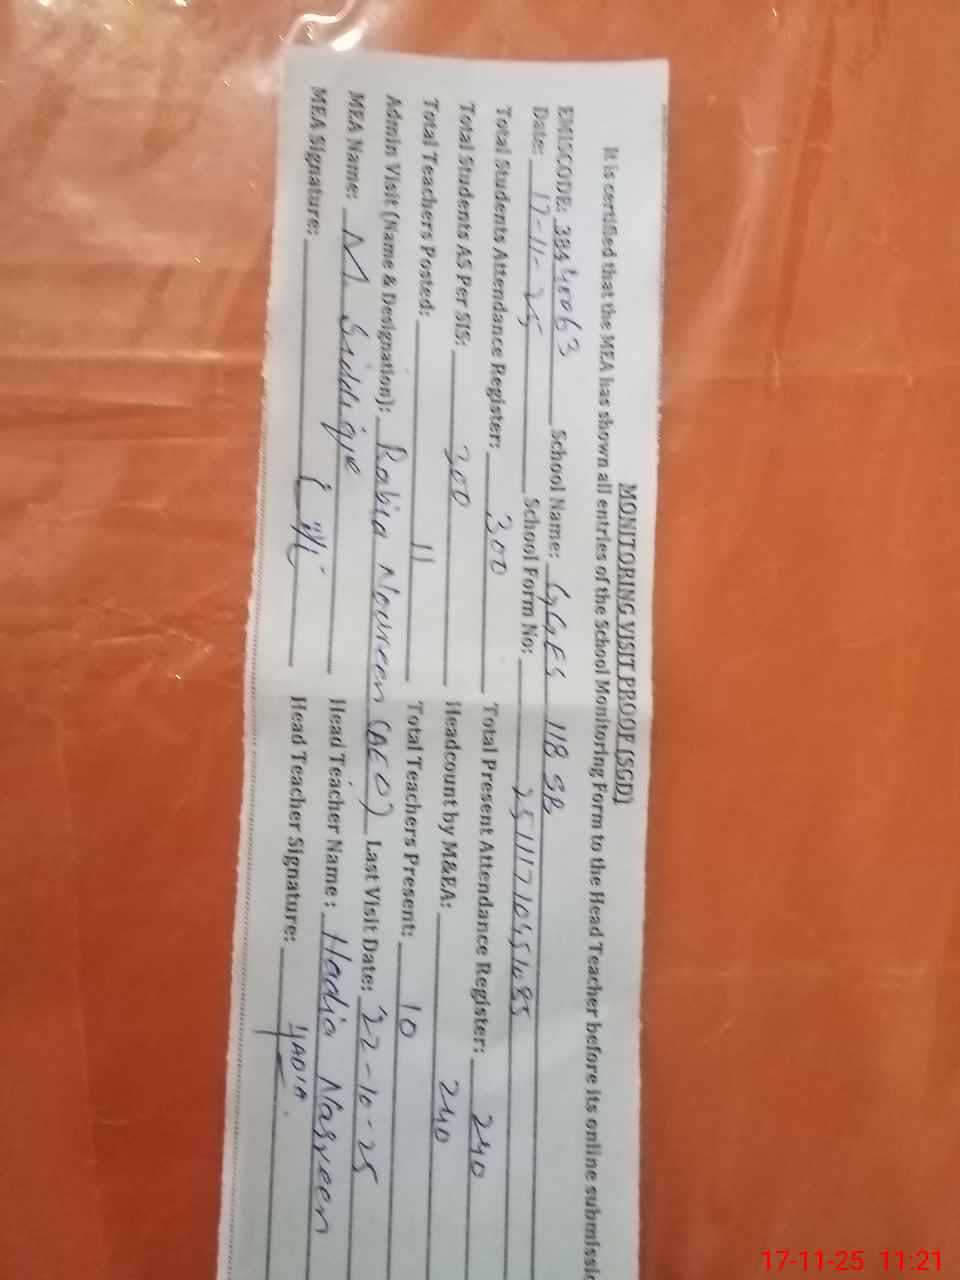 MONITORING VISIT PROOF (SGD)
It is certified that the MEA has shown all entries of the School Monitoring Form to the Head Teacher before its online submissio
EMISCODE: 38440063 School Name: GGES 118 SB
Date: 17-11-25 School Form No: 25111710451085
Total Students Attendance Register: 300 Total Present Attendance Register: 240
Total Students AS Per SIS: 300 Headcount by M&EA: 240
Total Teachers Posted: 11 Total Teachers Present: 10
Admin Visit (Name & Designation): Rabia Noureen (AEO) Last Visit Date: 22-10-25
MEA Name: M. Siddique Head Teacher Name : Hadia Nasreen
MEA Signature: Head Teacher Signature: HADIA
17-11-25 11:21